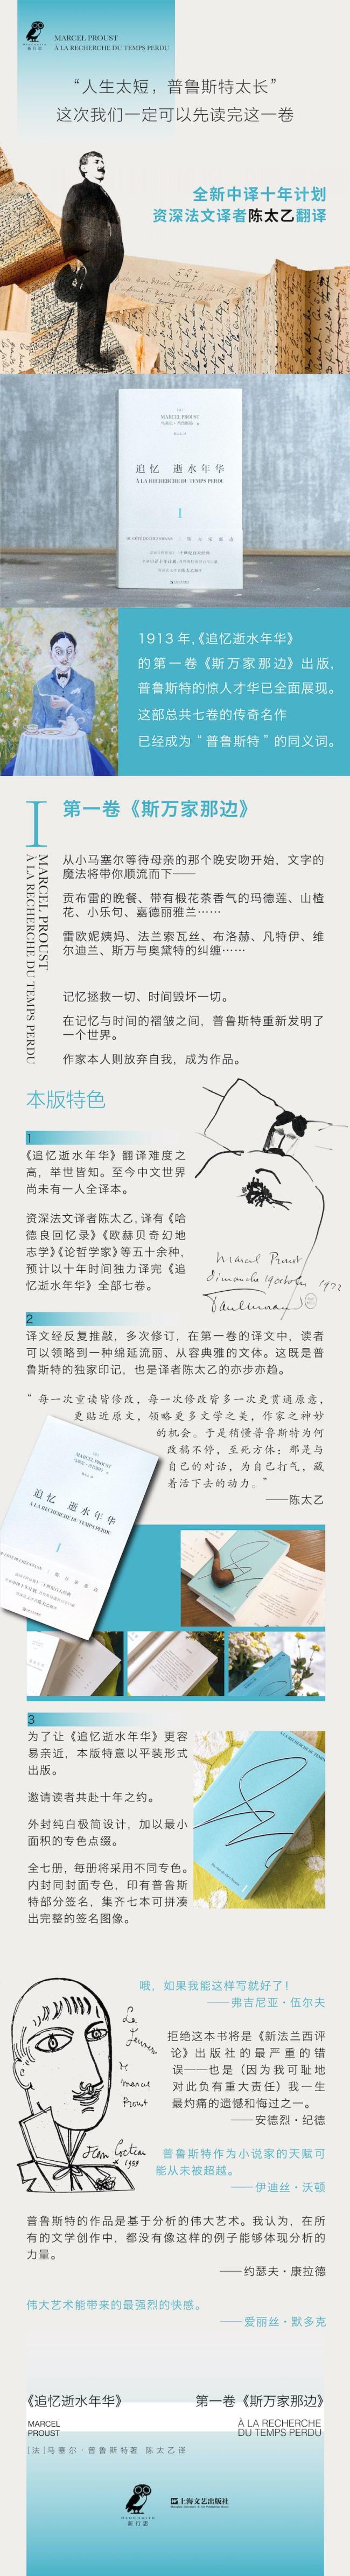 MARCEL PROUST
À LA RECHERCHE DU TEMPS PERDU
“人生太短，普鲁斯特太长”
这次我们一定可以先读完这一卷
全新中译十年计划
资深法文译者陈太乙翻译
MARCEL PROUST
追忆 逝水年华
À LA RECHERCHE DU TEMPS PERDU
I
1913 年，《追忆逝水年华》
的第一卷《斯万家那边》出版，
普鲁斯特的惊人才华已全面展现。
这部总共七卷的传奇名作
已经成为“普鲁斯特”的同义词。
I
MARCEL PROUST
À LA RECHERCHE DU TEMPS PERDU
第一卷《斯万家那边》
从小马塞尔等待母亲的那个晚安吻开始，文字的
魔法将带你顺流而下——
贡布雷的晚餐、带有椴花茶香气的玛德莲、山楂
花、小乐句、嘉德丽雅兰……
雷欧妮姨妈、法兰索瓦丝、布洛赫、凡特伊、维
尔迪兰、斯万与奥黛特的纠缠……
记忆拯救一切、时间毁坏一切。
在记忆与时间的褶皱之间，普鲁斯特重新发明了
一个世界。
作家本人则放弃自我，成为作品。
本版特色
1
《追忆逝水年华》翻译难度之
高，举世皆知。至今中文世界
尚未有一人全译本。
资深法文译者陈太乙，译有《哈
德良回忆录》《欧赫贝奇幻地
志学》《论哲学家》等五十余种，
预计以十年时间独力译完《追
忆逝水年华》全部七卷。
Marcel Proust
2
译文经反复推敲，多次修订，在第一卷的译文中，读者
可以领略到一种绵延流丽、从容典雅的文体。这既是普
鲁斯特的独家印记，也是译者陈太乙的亦步亦趋。
“每一次重读皆修改，每一次修改皆多一次更贯通原意，
更贴近原文，领略更多文学之美，作家之神妙
的机会。于是稍懂普鲁斯特为何
改稿不停，至死方休；那是与
自己的对话，为自己打气，藏
着活下去的动力。”
——陈太乙
MARCEL PROUST
追忆 逝水年华
À LA RECHERCHE DU TEMPS PERDU
I
3
为了让《追忆逝水年华》更容
易亲近，本版特意以平装形式
出版。
邀请读者共赴十年之约。
外封纯白极简设计，加以最小
面积的专色点缀。
全七册，每册将采用不同专色。
内封同封面专色，印有普鲁斯
特部分签名，集齐七本可拼凑
出完整的签名图像。
哦，如果我能这样写就好了！
——弗吉尼亚·伍尔夫
拒绝这本书将是《新法兰西评
论》出版社的最严重的错
误——也是（因为我可耻地
对此负有重大责任）我一生
最灼痛的遗憾和悔过之一。
——安德烈·纪德
普鲁斯特作为小说家的天赋可
能从未被超越。
——伊迪丝·沃顿
Marcel
Proust
Jean Cocteau
普鲁斯特的作品是基于分析的伟大艺术。我认为，在所
有的文学创作中，都没有像这样的例子能够体现分析的
力量。
——约瑟夫·康拉德
伟大艺术能带来的最强烈的快感。
——爱丽丝·默多克
《追忆逝水年华》
第一卷《斯万家那边》
MARCEL
PROUST
À LA RECHERCHE
DU TEMPS PERDU
[法]马塞尔·普鲁斯特著 陈太乙译
新行思
上海文艺出版社